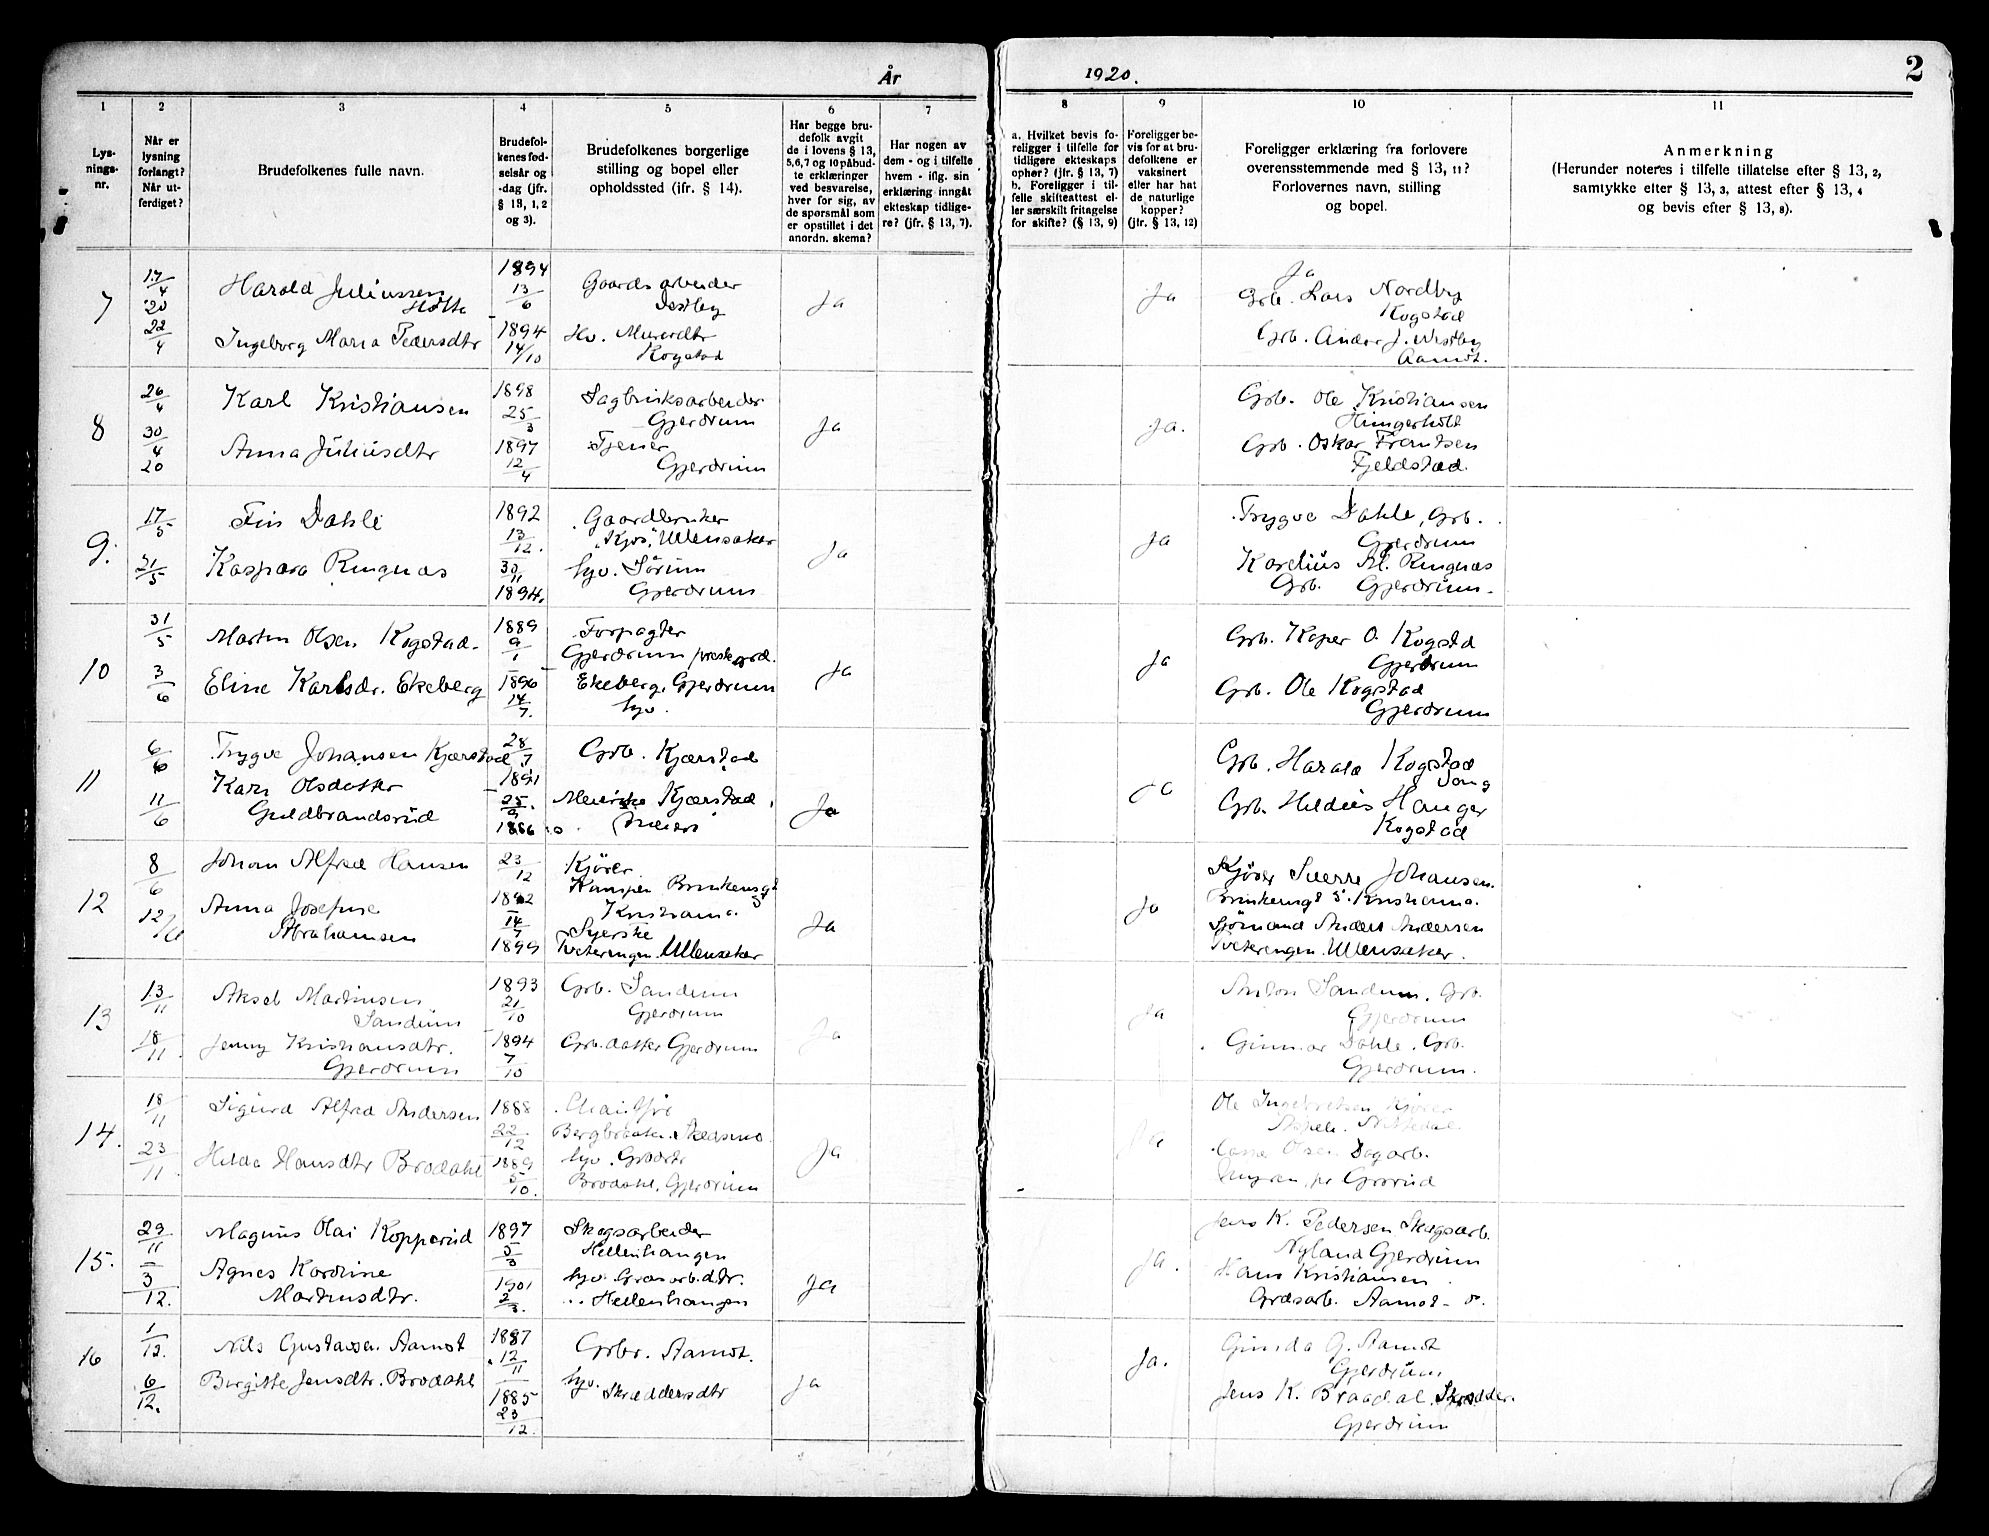 År 1920.
2
1 2 3 4 5 6 7 8 9 10 11
Lys-
nings-
nr.
Når er
lysning
forlangt?
Når ut-
ferdiget?
Brudefolkenes fulle navn.
Brudefol-
kenes fød-
selsår og
-dag (jfr.
§ 13, 1, 2
og 3).
Brudefolkenes borgerlige
stilling og bopel eller
opholdssted (ifr. § 14).
Har begge bru-
defolk avgit
de i lovens § 13,
5,6,7 og 10 påbud-
te erklæringer
ved besvarelse,
hver for sig, av
de spørsmål som
er opstillet i det
anordn. skema?
Har nogen av
dem - og i tilfelle
hvem - iflg. sin
erklæring inngåt
ekteskap tidlige-
re? (jfr. § 13, 7).
a. Hvilket bevis fo-
religger i tilfelle for
tidligere ekteskaps
ophør? (jfr. § 13, 7)
b. Foreligger i til-
felle skifteattest el-
ler særskilt fritagelse
for skifte? (§ 13, 9)
Foreligger be-
vis for at bru-
defolkene er
vaksinert
eller har hat
de naturlige
kopper?
(jfr. § 13, 12)
Foreligger erklæring fra forlovere
overensstemmende med § 13, 11?
Forlovernes navn, stilling
og bopel.
Anmerkning
(Herunder noteres i tilfelle tillatelse efter § 13, 2,
samtykke efter § 13, 3, attest efter § 13, 4
og bevis efter § 13, 8).
7
17/4
20
22/4
Harald Juliussen
Holte
Ingeborg Maria Pedersdtr
1894
13/6
1894
14/10
Gaardsarbeider
Hv. Murerdtr
Kogstad
Ja
Ja
Ja
Grb. Lars Nordby
Kogstad
Grb. Andor J. Westby
Aamot.
8
26/4
30/4
20
Karl Kristiansen
Anna Juliusdtr
1898
25/3
1897
12/4
Sagbruksarbeider
Gjerdrum
Tjener
Gjerdrum
Ja
Ja.
Grb. Ole Kristiansen
Hungerholt
Grb. Oskar Frantsen
Fjeldstad.
9.
17/5
21/5
Fin Dahle
Kaspara Ringnæs
1892
13/12.
30/11
1894.
Gaardbruker
"Kjos", Ullensaker
hjv. Sörum
Gjerdrum
Ja
Ja
Trygve Dahle, Grb.
Gjerdrum
Karelius Kl. Ringnæs
Grb. Gjerdrum.
10
31/5
3/6
Martin Olsen Kogstad.
Eline Karlsdr. Ekeberg
1889
9/1
1896
14/7.
Forpagter
Gjerdrum prestegrd.
Ekeberg, Gjerdrum
hjv.
Ja
Ja
Grb. Kasper O. Kogstad
Gjerdrum
Grb. Ole Kogstad
Gjerdrum
11
6/6
11/6
Trygve Johansen Kjærstad
Kari Olsdatter
Guldbrandsrud
28/7
1891
25/9
1886
Grb. Kjærstad
Meierske Kjærstad
Meieri
Ja
Ja
Grb. Harald Kogstad
Grb. Hildius Hanger
Kogstad
12
8/6
12/6
Johan Alfred Hansen
Anna Josefine
Abrahamsen
23/12
1892
14/7
1899
Kjörer
Kampen Brinkensgt
Kristiania
Syerske
Tveterengen. Ullensaker
Ja
Ja
Kjörer Sverre Johansen.
Brinkensgt 3. Kristiania.
Sjömand Anders Andersen
Tveterengen Ullensaker.
13
13/11
18/11
Aksel Martinsen
Sandum
Jenny Kristiansdtr.
Gjerdrum
1893
21/10
1894
7/10
Grb. Sandum
Gjerdrum
Grb. datter Gjerdrum
Ja
Ja
Anton Sandum. Grb.
Gjerdrum
Gunnar Dahle. Grb.
Gjerdrum.
14.
18/11
23/11
Sigurd Alfred Andersen
Hilda Hansdtr Brodahl
1888
22/12
1889
5/10.
Skedsmo.
hjv.
Brodahl, Gjerdrum
Ja
Ja
Ole Ingebretsen Kjörer
Nittedal.
Olsen Dagarb.
15.
29/11
3/12.
Magnus Olai Kopperud
Agnes Karoline
Martinsdtr.
1897
5/3
1901
2/3.
Skogsarbeider
Hellenhaugen
hjv. Grdsarb.dtr.
Hellenhaugen
Ja
Ja.
Jens K. Pedersen Skogsarb.
Nyland Gjerdrum
Hans Kristiansen
Grdsarb. Aamot
16
1/12.
6/12.
Nils Gustavsen Aamot
Birgitte Jensdtr. Brodahl
1887
12/11
1885
23/12.
Grbr. Aamot.
hjv. Skreddersdtr
Ja
Ja.
G. Aamot
Gjerdrum
Jens K. Braadal. Skredder.
Gjerdrum